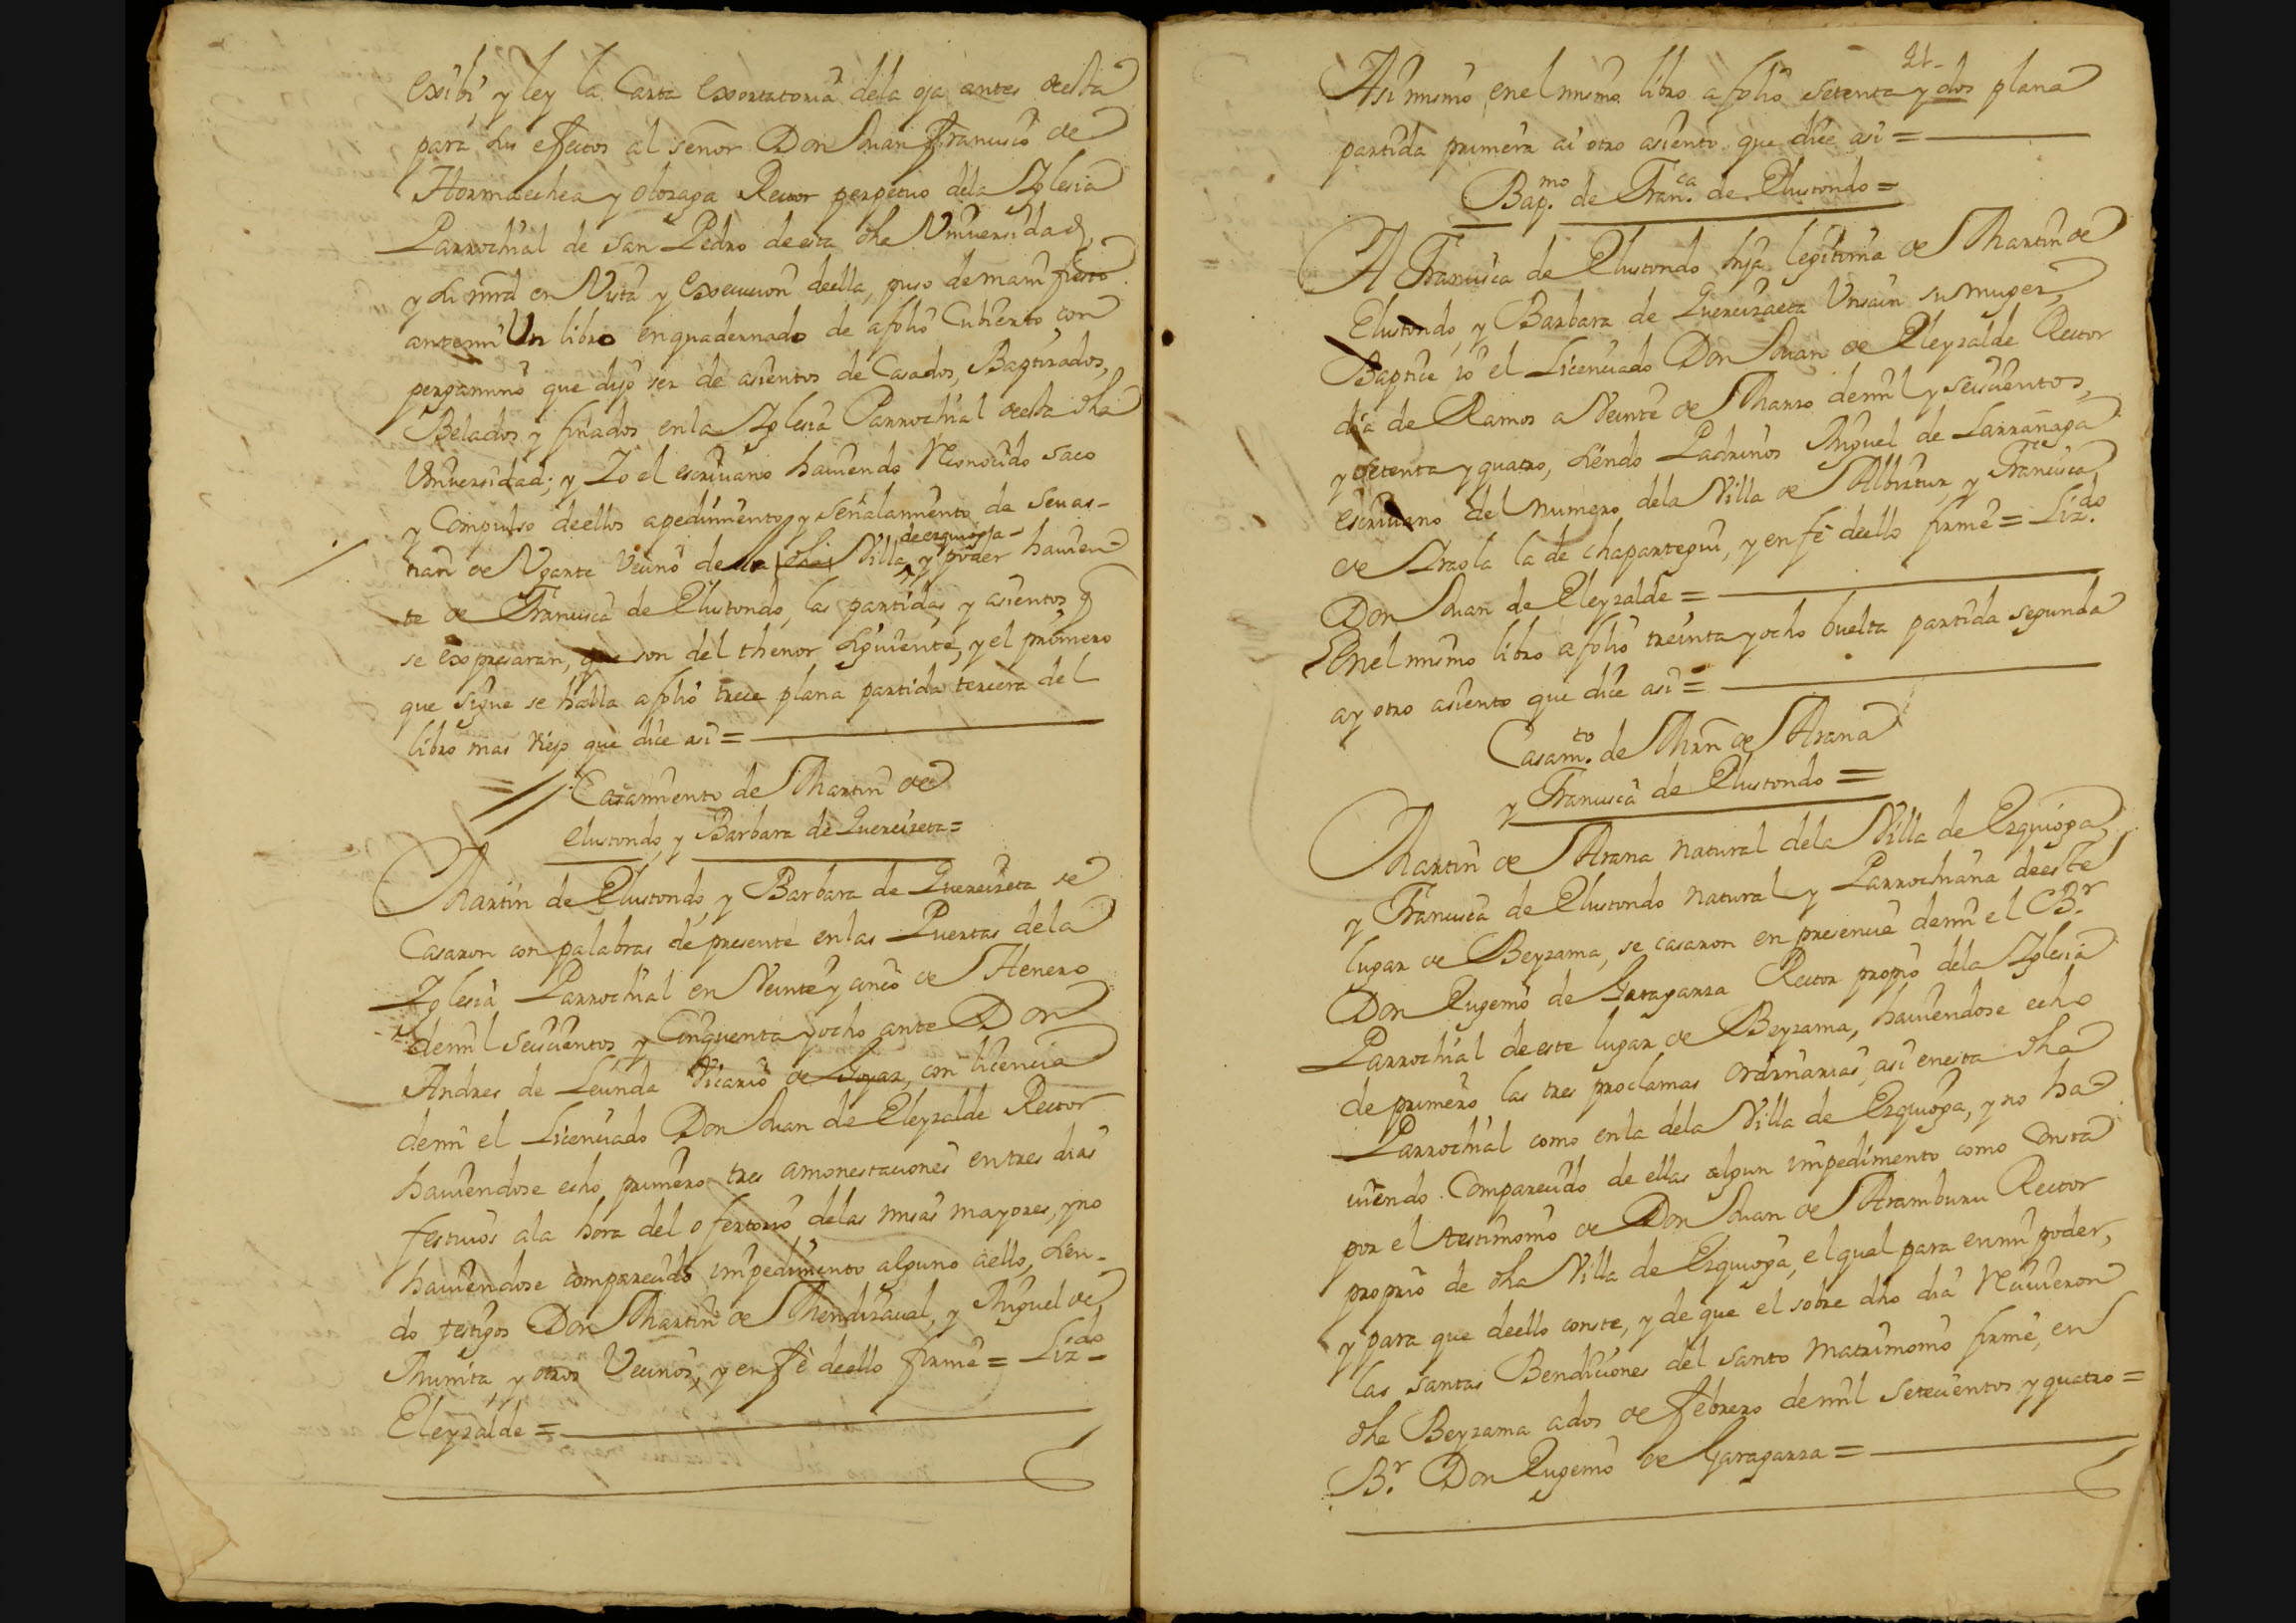 Exsibi, y ley la Carta Exortatoria dela oja antes desta
para sus efectos al señor Don Juan Francisco de
Hormaechea y olozaga Rector perpetuo dela Yglesia
Parrochial de San Pedro deesta dha Vniversidad,
y su mrd en Vista y Execucion deella, puso de manifiesto
antemi Un libro enquadernado de afolio Cubierto con
pergamino que dijo ser de asientos de Casados, Baptizados,
Belados y finados enla Yglesia Parrochial desta dha
Vniversidad; y Yo el escriuano hauiendo Reconocido saco
y Compulso deellos apedimento, y señalamiento de Seuas-
tian de Vgarte vecino de la dha Villa de ezquioga y poder hauien-
te de Francisca de Elustondo, las partidas, y asientos q
se expresaran, que son del thenor siguiente, y el primero
que sigue se halla afolio trece plana partida tercera del
libro mas viejo que dice asi =
Casamiento de Martin de
elustondo, y Barbara de Quereizeta =
Martin de Elustondo, y Barbara de Quereizeta se
Casaron con palabras de presente enlas Puertas dela
Yglesia Parrochial en Veinte y cinco de Henero
demil seiscientos y Cinquenta yocho ante Don
Andres de Leunda Vicario de Goyaz, con licencia
demi el Licenciado Don Juan de Eleyzalde Rector
hauiendose echo primero tres amonestaciones entres dias
festiuos ala hora del ofertorio delas misas mayores, yno
hauiendose comparecido impedimento alguno aello, sien-
do testigos Don Martin de Mendizaual, y Miguel de
Munita, y otros Vecinos, y enfè deello firmè = Lizdo
Eleyzalde =
21-
Asi mismo, enel mismo libro afolio setenta y dos plana
partida primera ai otro asiento que dice asi =
Bapmo de Franca de Elustondo =
A Francisca de Elustondo hija legitima de Martin de
Elustondo, y Barbara de Quereizaeta Vnsain su muger,
Baptice io el Licenciado Don Juan de Eleyzalde Rector
dia de Ramos a Veinte de Marzo demil y seiscientos,
y setenta y quatro, siendo Padrinos Miguel de Larrañaga
escriuano del numero dela Villa de Albiztur, y Francisca
de Yraola la de chapartegui, y enfè deello firmè = Lizdo
Don Juan de Eleyzalde =
Enel mismo libro afolio treinta yocho buelta partida segunda
ay otro asiento que dice asi =
Casamto de Mrn de Arana
y Francisca de Elustondo =
Martin de Arana natural dela Villa de Ezquioga,
y Francisca de Elustondo natural y Parrochiana deeste
lugar de Beyzama, se casaron en presencia demi el Br
Don Eugenio de Garagarza Rector propio dela Yglesia
Parrochial deeste lugar de Beyzama, hauiendose echo
de primero las tres proclamas ordinarias, asi enesta dha
Parrochial como enla dela Villa de Ezquioga, y no ha
uiendo Comparecido de ellas algun impedimento como consta
por el testimonio de Don Juan de Aramburu Rector
proprio de dha Villa de Ezquioga, el qual para enmi poder,
y para que deello conste, y de que el sobre dho dia Reciuieron
las santas Bendiciones del santo Matrimonio firmè, en
dha Beyzama ados de febrero demil setecientos y quatro =
Br Don Eugenio de Garagarza =